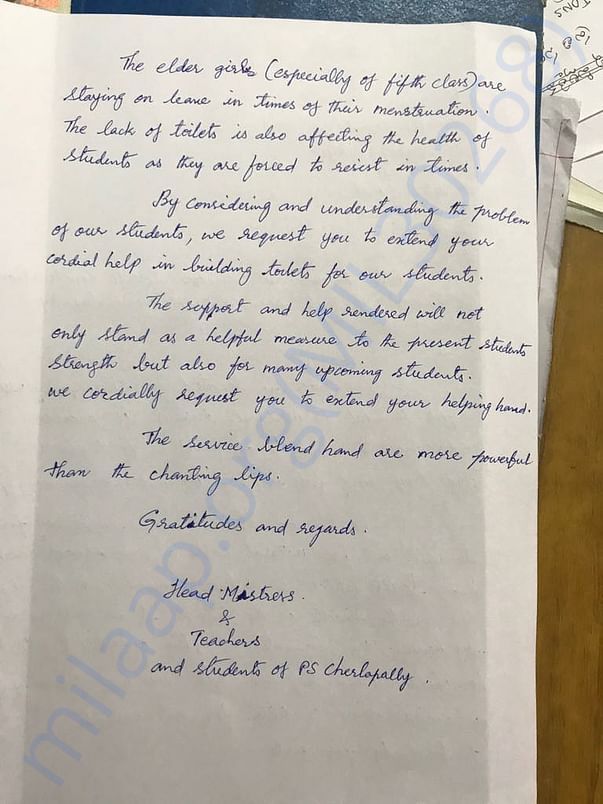 The elder girls (especially of fifth class) are
staying on leave in times of their menstruation.
The lack of toilets is also affecting the health of
students as they are forced to resist in times.
By considering and understanding the problem
of our students, we request you to extend your
cordial help in building toilets for our students.
The support and help rendered will not
only stand as a helpful measure to the present students
strength but also for many upcoming students.
we cordially request you to extend your helping hand.
The service blend hand are more powerful
than the chanting lips.
Gratitudes and regards.
Head Mistress.
&
Teachers
and students of PS Cherlapally.
milaap.org(MIL30268)